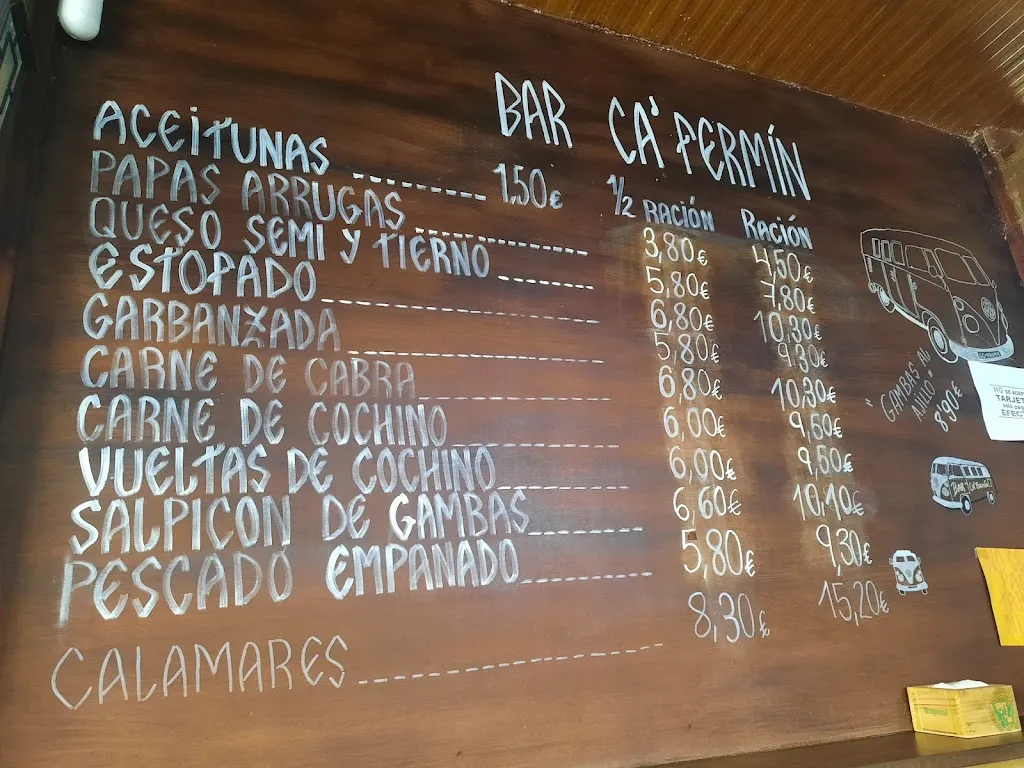 BAR CA' FERMÍN
½ RACIÓN RACIÓN
ACEITUNAS 1.50€
PAPAS ARRUGAS 3,80€ 4,50€
QUESO SEMI Y TIERNO 5,80€ 7,80€
ESTOFADO 6,80€ 10,30€
GARBANZADA 5,80€ 9,30€
CARNE DE CABRA 6,80€ 10,30€
CARNE DE COCHINO 6,00€ 9,50€
VUELTAS DE COCHINO 6,00€ 9,50€
SALPICON DE GAMBAS 6,60€ 10,10€
PESCADO EMPANADO 5,80€ 9,30€
CALAMARES 8,30€ 15,20€
"GAMBAS AL
AJILLO"
8,90€
NO SE
TARJET
EFEC
BAR
Tropical